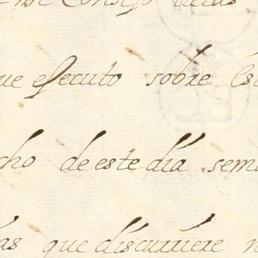 Consejo
que efecuto sobre
cho de este día sem
las que discurriere